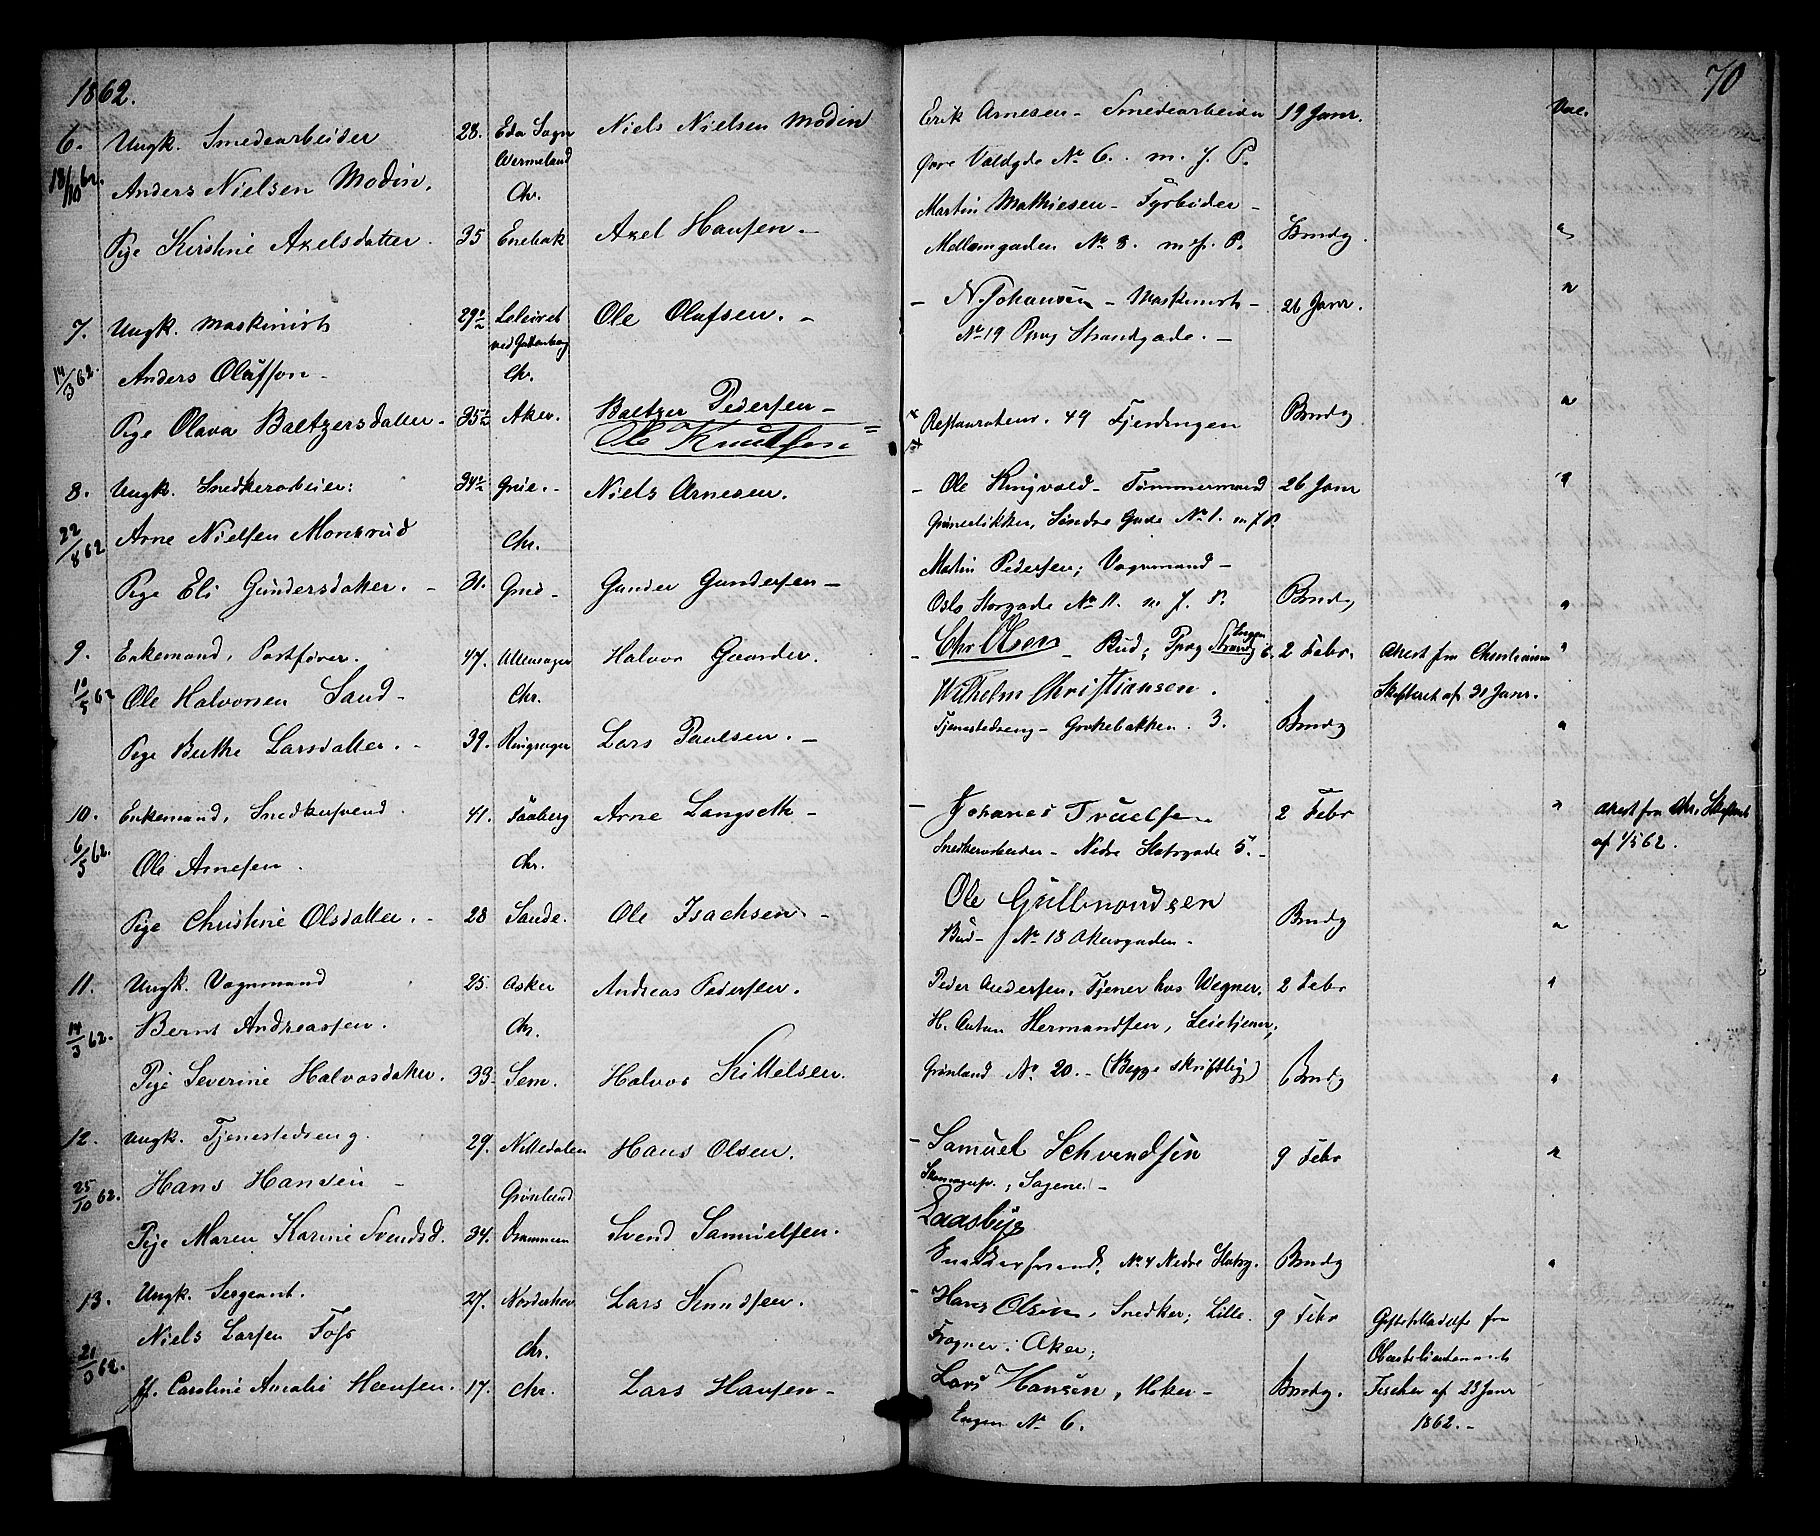 1862.
70
6. Ungk. Smedearbeider 28. Eda Sogn Niels Nielsen Modin
18/10 62. Wermeland
Anders Nielsen Modin. Chr.
Pige Kirstine Axelsdatter. 35 Enebak Axel Hansen. –
7. Ungk. Maskinist 29½ Ole Olafsen. –
14/3 62. Anders Olufsson – Chr.
Pige Olava Baltzersdatter – 35½ Aker. Baltzer Pedersen –
Ole Knudsen =
8. Ungk. Snedkerarbeier: 34½ Grue. – Niels Arnesen.
22/8 62 Arne Nielsen Monsrud Chr.
Pige Eli Gundersdatter. – 31. Grue – Gunder Gundersen –
9. Enkemand, Postfører. 47. Ullensager Halvor Gaarder.
10/5 62 Ole Halvorsen Sand – Chr.
Pige Berthe Larsdatter. – 39. Ringsager Lars Paulsen. –
10. Enkemand, Snedkersvend. 41. Faaberg Arne Langseth –
6/5 62. Ole Arnesen. Chr.
Pige Christine Olsdatter. – 28 Sande. Ole Isachsen. –
11. Ungk. Vognmand 25. Asker Andreas Pedersen.
14/3 62. Bernt Andreassen. Chr.
Pige Severine Halvorsdatter. 33 – Sem. Halvor Kittelsen.
12. Ungk. Tjenestedreng. 29. Nittedalen Hans Olsen.
25/10 62. Hans Hansen – Grønland
Pige Maren Karine Svendsd. 34. Drammen Svend Samuelsen.
13. Ungk. Sergeant. 27. Norderhov Lars Knudsen.
Niels Larsen Foss Chr.
Jf. Caroline Amalie Hansen. 17. Chr. Lars Hansen –
Erik Arnesen – Smedearbeider 19 Janr. Vac.
Øvre Voldgde No 6. m. f. P.
Martin Mathiesen – Fyrbøder –
Mellemgaden No 8. m. f. P. Bmdg. "
– N. Johansen – Maskinist – 26 Janr. "
No 19 Pprvg Strandgade. –
Restaurateur. 49 Fjerdingen Bmdg "
– Ole Ringvold – Tømmermand 26 Janr "
Grünerløkken, Søndre Gade No 1. m f P.
Martin Pedersen; Vognmand –
Oslo Storgade No 11. m. f. P. Bmdg "
– Chr Olsen – Bud; Pprvg 2 Febr. Attest fra Christiania "
Wilhelm Christiansen. Skifteret af 31 Janr.
Tjenestedreng – Gorkebakken. 3. Bmdg "
– Johanes Truelsen 2 Febr " Attest fra Chr. Skifteret
Snedkerarbeider – Nedre Slotsgade 5. – af 1/5 62.
Ole Gulbrandsen
Bud – No 18 Akersgaden – Bmdg "
Peder Andersen, Tjener hos Wegner. 2 Febr "
H. Anton Hermandsen, Leietjener,
Grønland No 20. – (Begge skriftlig) Bmdg "
– Samuel Schvendsen 9 Febr "
Sagene. –
Snedkersvend, No 4 Nedre Slotsg. Bmdg "
– Hans Olsen, Snedker; Lille. 9 Febr Giftetilladelse fra
Frogner i Aker; Oberstlieutenant
Lars Hansen, Høker – Bmdg. Fischer af 23 Janr
Engen No 6. 1862. –